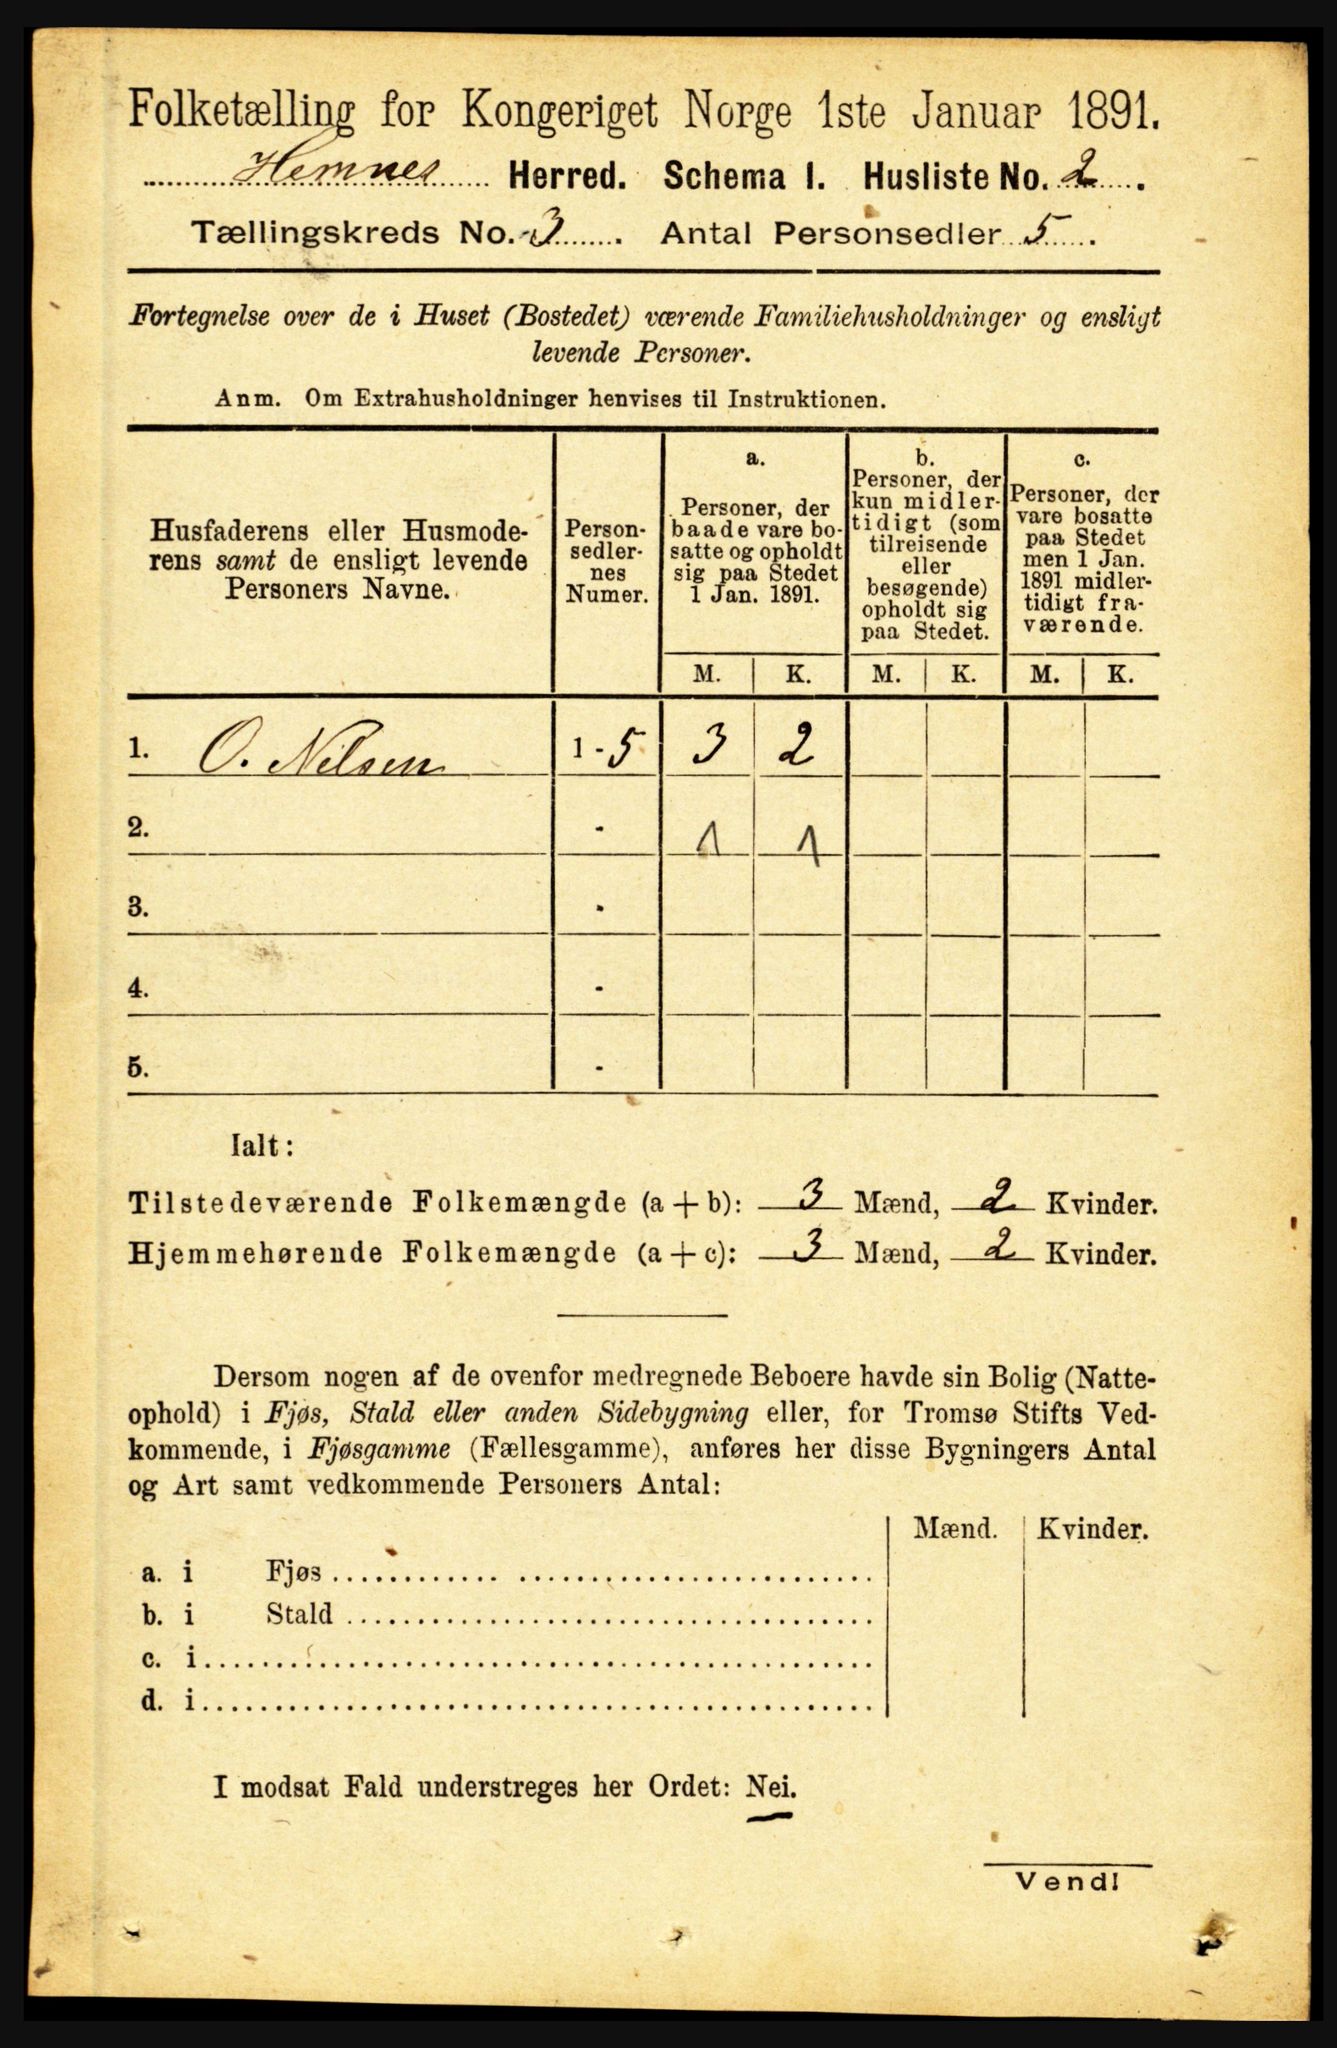 Folketælling for Kongeriget Norge 1ste Januar 1891.
Hemnes Herred. Schema I. Husliste No. 2.
Tællingskreds No. 3. Antal Personsedler 5.
Fortegnelse over de i Huset (Bostedet) værende Familiehusholdninger og ensligt
levende Personer.
Anm. Om Extrahusholdninger henvises til Instruktionen.
Husfaderens eller Husmode-
rens samt de ensligt levende
Personers Navne.
Person-
sedler-
nes
Numer.
a.
Personer, der
baade vare bo-
satte og opholdt
sig paa Stedet
1 Jan. 1891.
b.
Personer, der
kun midler-
tidigt (som
tilreisende
eller
besøgende)
opholdt sig
paa Stedet.
c.
Personer, der
vare bosatte
paa Stedet
men 1 Jan.
1891 midler-
tidigt fra-
værende.
M. K. M. K. M. K.
1. O. Nilsen 1 - 5 3 2
2. - 1 1
3. -
4. -
5. -
Ialt:
Tilstedeværende Folkemængde (a + b): 3 Mænd, 2 Kvinder.
Hjemmehørende Folkemængde (a + c): 3 Mænd, 2 Kvinder.
Dersom nogen af de ovenfor medregnede Beboere havde sin Bolig (Natte-
ophold) i Fjøs, Stald eller anden Sidebygning eller, for Tromsø Stifts Ved-
kommende, i Fjøsgamme (Fællesgamme), anføres her disse Bygningers Antal
og Art samt vedkommende Personers Antal:
Mænd. Kvinder.
a. i Fjøs
b. i Stald
c. i
d. i
I modsat Fald understreges her Ordet: Nei.
Vend!